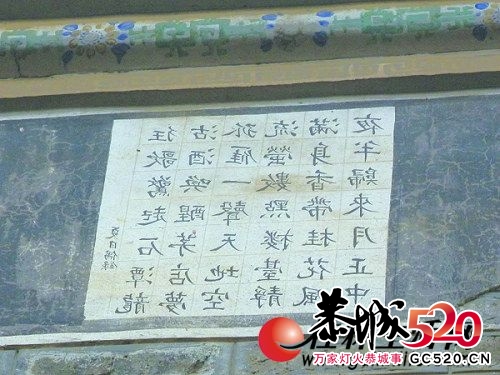 夜半歸來月正中
滿身香帶桂花風
流螢數點樓臺靜
孤雁一聲天地空
沽酒喚醒茅店夢
狂歌驚起石潭龍
夏日偶錄
恭城520
万家灯火恭城事 GC520.CN